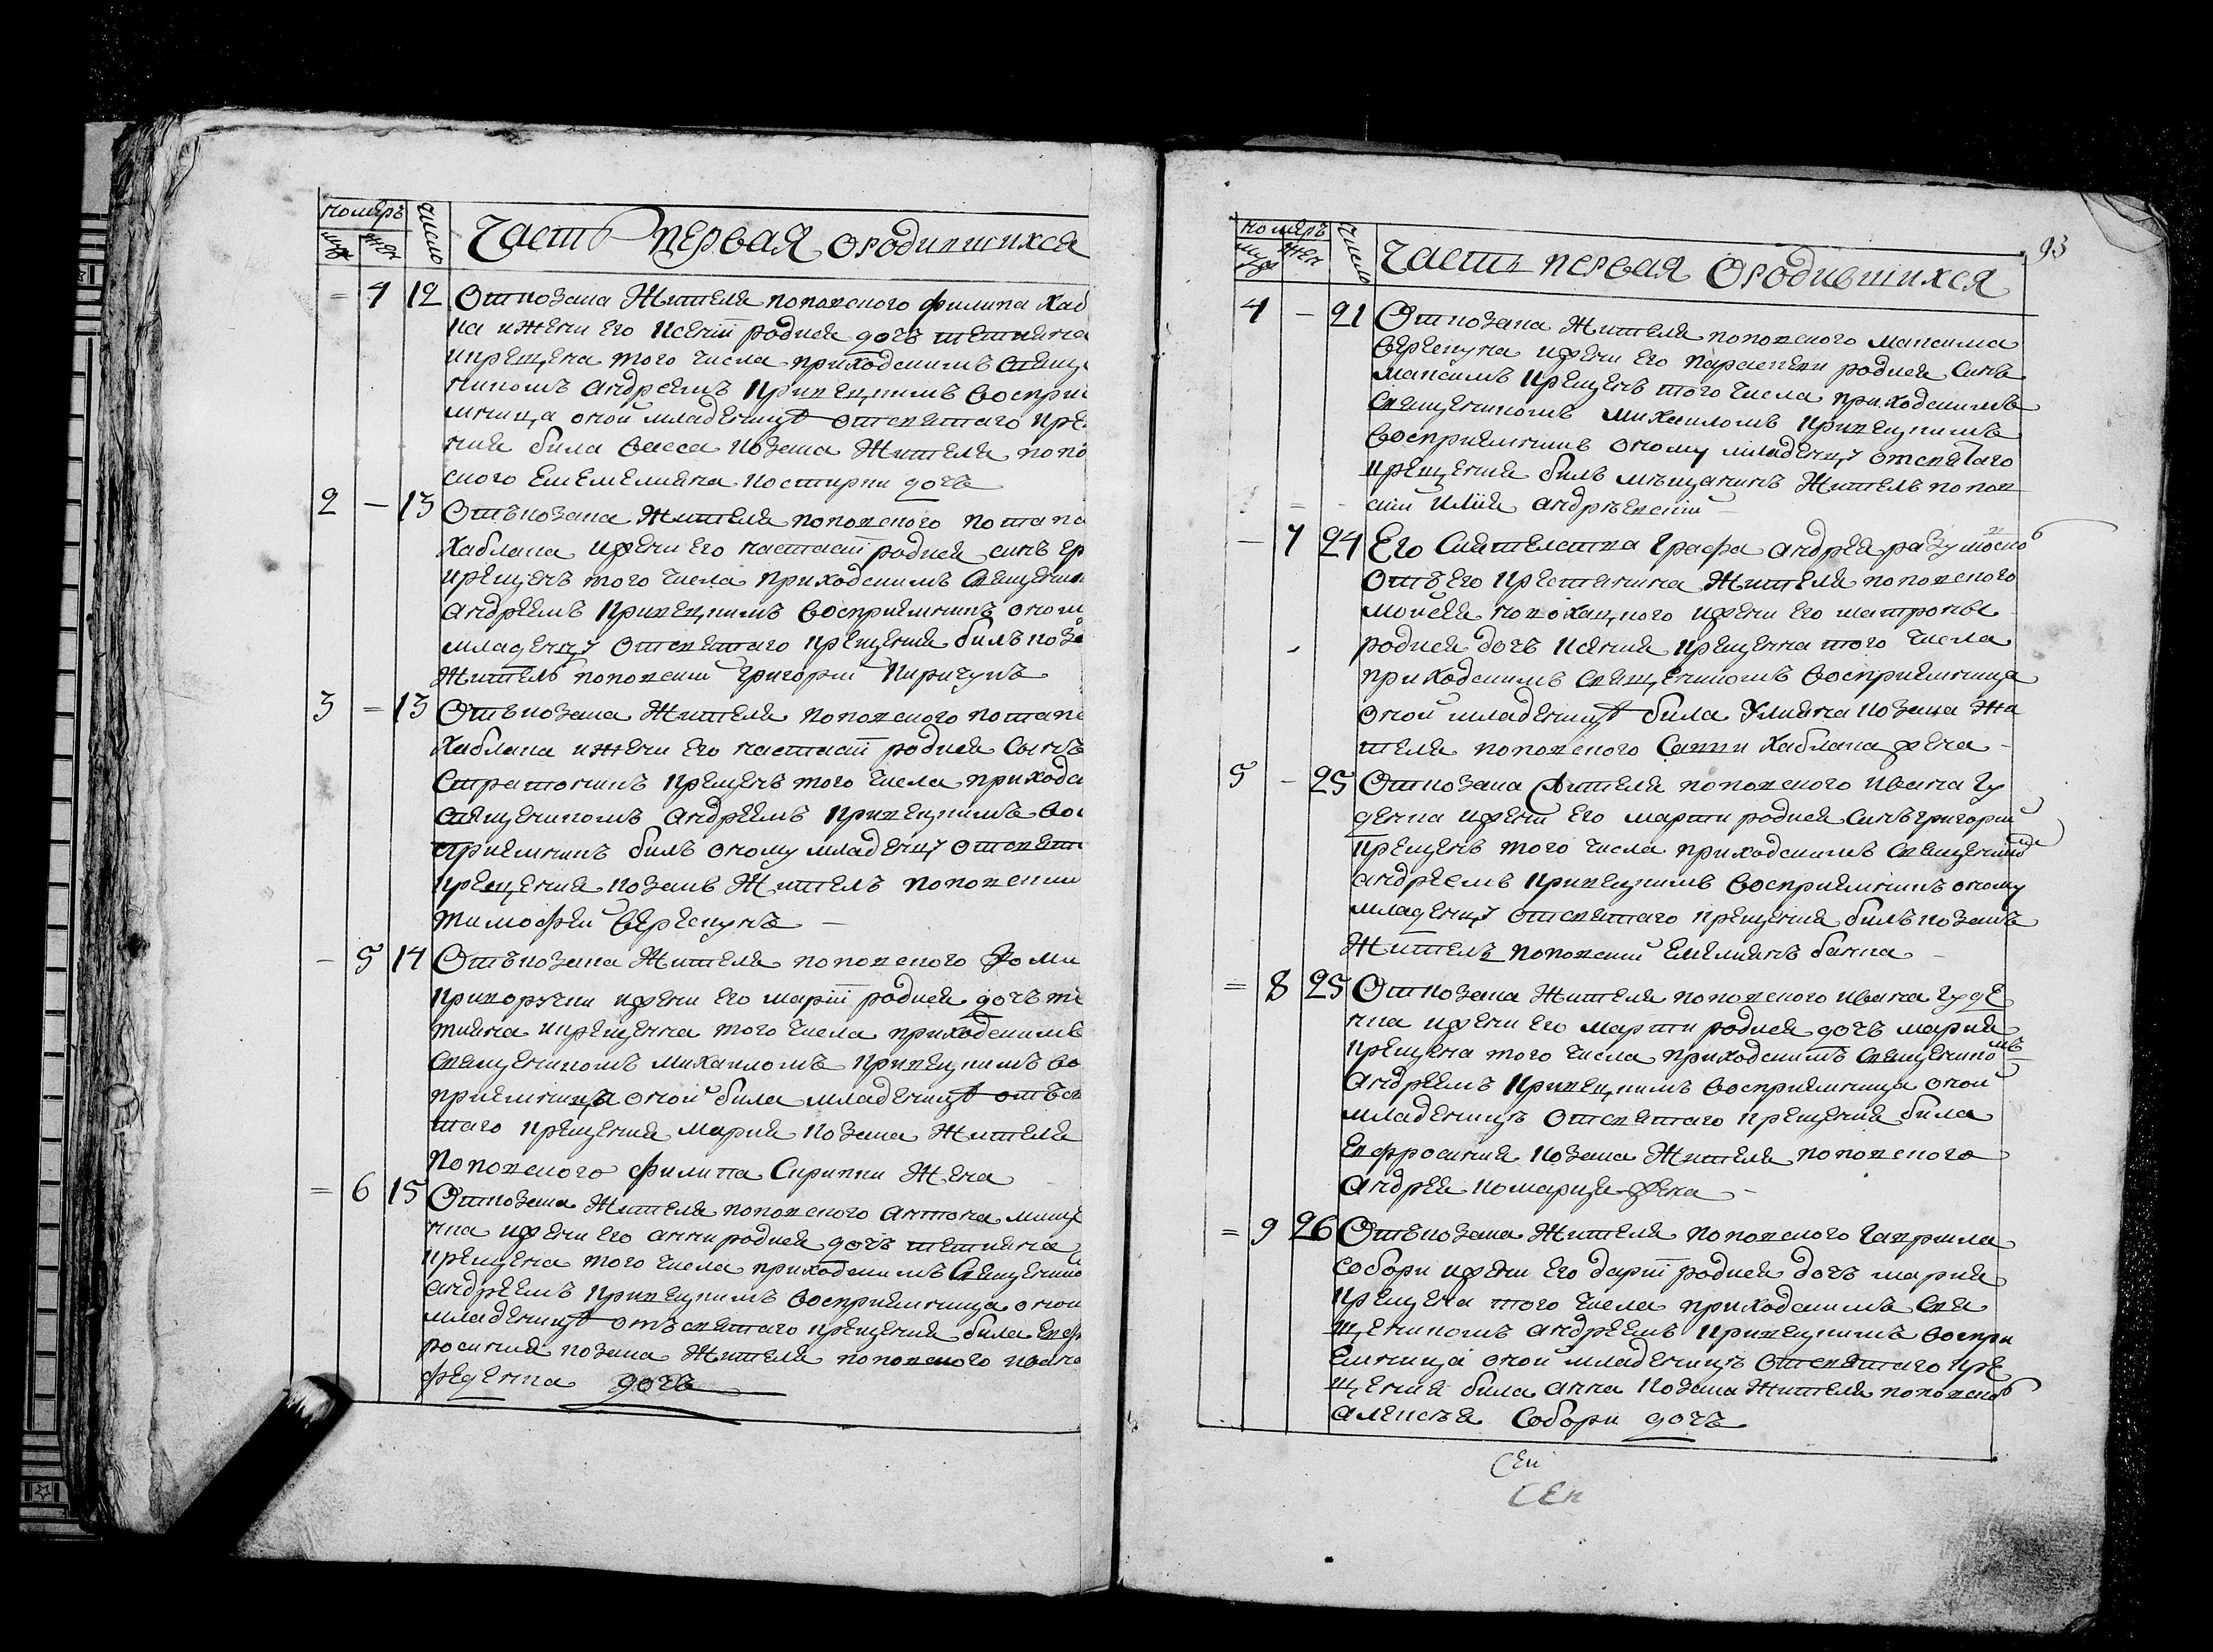 номеръ
муж
жен
число
Часть первая ородившихся
= 4 12 Отковака Жителя поповского филипа Хаб
ка ижени его Ксенїи родися дочъ тетияна
икрещена того числа приходскимъ свяще
никомъ андреемъ Кривецкимъ воспри
мница оной младеницѣ отсвятаго кре
ния била васса козака Жителя попо
ского Емемелияна Костирки дочъ
2 – 13 Отъкозака Жителя поповского потапа
Хаблака ижени его настасїи родися синъ
крещенъ того числа приходскимъ священик
андреемъ Кривецкимъ восприемникъ оном
младенцу отсвятаго крещения билъ коза
Жителъ поповский григорий Киричукъ
3 = 13 Отъкозака Жителя поповского потапа
Хаблака ижени его настасїи родися сынъ
Стратоникъ крещенъ того числа приходс
священикомъ андреемъ Кривецкимъ вос
приемникъ билъ оному младенцу отсвят
крещения козакъ Жителъ поповский
тимофей Верескунъ –
– 5 14 Отъкозака Жителя поповского Фоми
Криворучки ижени его марїи родися дочъ те
тияна икрещенна того числа приходскимъ
священикомъ михаиломъ Кривецкимъ во
приемница оной била младеницѣ отъсв
таго крещения мария козака Жителя
поповского филипа Скрипки Жена
= 6 15 Откозака Жителя поповского антона мище
нка ижени его анни родися дочъ тетияна
крещена того числа приходскимъ священико
андреемъ Кривецкимъ восприемница оной
младеницѣ отъсвятаго крещения била Евф
росиния козака Жителя поповского ивана
феденка дочъ
93
номеръ
муж
жен
число
Часть первая Ородившихся
4 – 21 Откозака Жителя поповского максима
верескуна ижени его параскеви родися синъ
максимъ крещенъ того числа приходскимъ
священикомъ михаиломъ Кривецкимъ
восприемникъ оному младенцу отсвятаго
крещения билъ мѣщанинъ Жителъ попов
ский илия андрѣевский
– 7 24 Его Сиятелства графа андрея разумовско
отъ его крестянина Жителя поповского
моисея коноханного ижени его матроны
родися дочъ Ксения крещенна того числа
приходскимъ священикомъ восприемница
оной младеницѣ била Улияна козака Жи
теля поповского Савки Хаблака жена
5 – 25 Откозака Жителя поповского ивана гу
денка ижени его марти родися синъ григорий
крещенъ того числа приходскимъ священико
андреемъ Кривецкимъ восприемникъ оному
младенцу отсвятаго крещения билъ козакъ
Жителъ поповский Емелиянъ
= 8 25 Откозака Жителя поповского ивана гуде
нка ижени его марти родися дочъ мария
крещена того числа приходскимъ священикомъ
андреемъ Кривецкимъ восприемница оной
младеницѣ отсвятаго крещения била
Евфросиния козака Жителя поповского
андрея комарця жена –
= 9 26 Отъкозака Жителя поповского гаврила
собори ижени его дарїи родися дочъ мария
крещена того числа приходскимъ свя
щеникомъ андреемъ Кривецкимъ воспри
емница оной младеницѣ отсвятаго кре
щения била анна козака Жителя поповско
алексѣя Собори дочъ